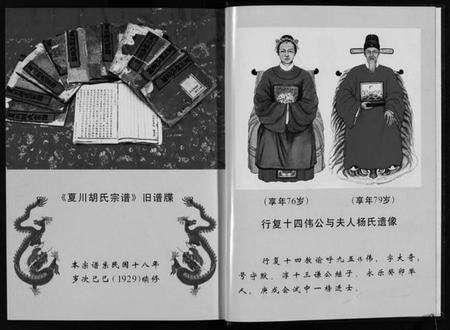 《夏川胡氏宗谱》旧谱牒
本宗谱系民国十八年
岁次己巳(1929)续修
(享年76岁) (享年79岁)
行复十四伟公与夫人杨氏遗像
行复十四教谕呼九五伟,字大奇,
号守默,淳十三谦公结子,永乐癸卯举
人,庚龙会试中一榜进士。